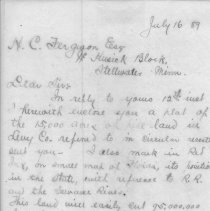 July 16 89
H. C. Ferguson Esq
Musick Block,
Stillwater Minn.
Dear Sir:
In reply to yours 12th inst
I herewith enclose you a plat of
the 15,000 acre of pine land in
Levy Co. referred to in circular recent
sent you - I also mark in
on small map of Florida, its location
in the state, with refrence to R.R.
and the Suwanee River.
This land will easily cut 90,000,000